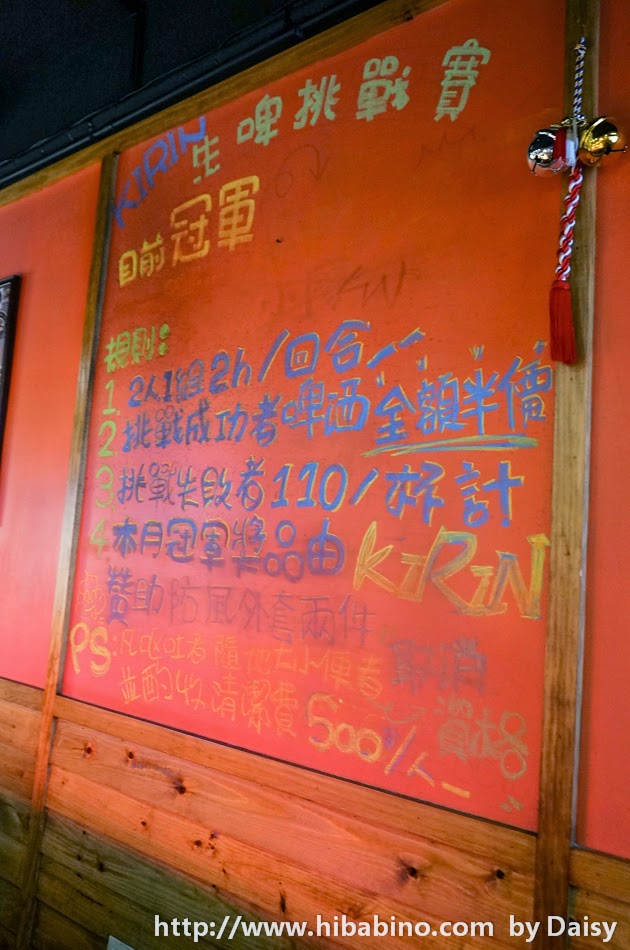 KIRIN 生啤挑戰賽
目前冠軍
規則：
1. 2人1組2h/回合
2. 挑戰成功者啤酒全額半價
3. 挑戰失敗者110/杯計
4. 本月冠軍獎品由KIRIN
贊助防風外套兩件
PS:凡嘔吐者隨地大小便者取消
並酌收清潔費500/人 資格
http://www.hibabino.com by Daisy